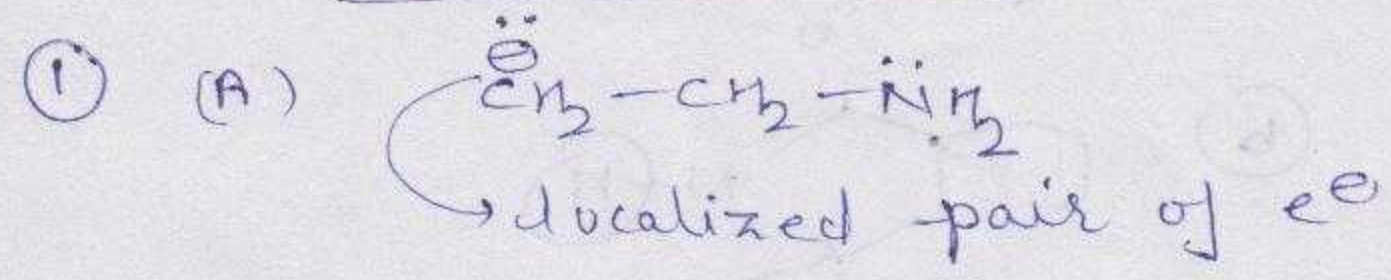 ① (A) C̈H₂⊖ – CH₂ – N̈H₂
localized pair of e⊖